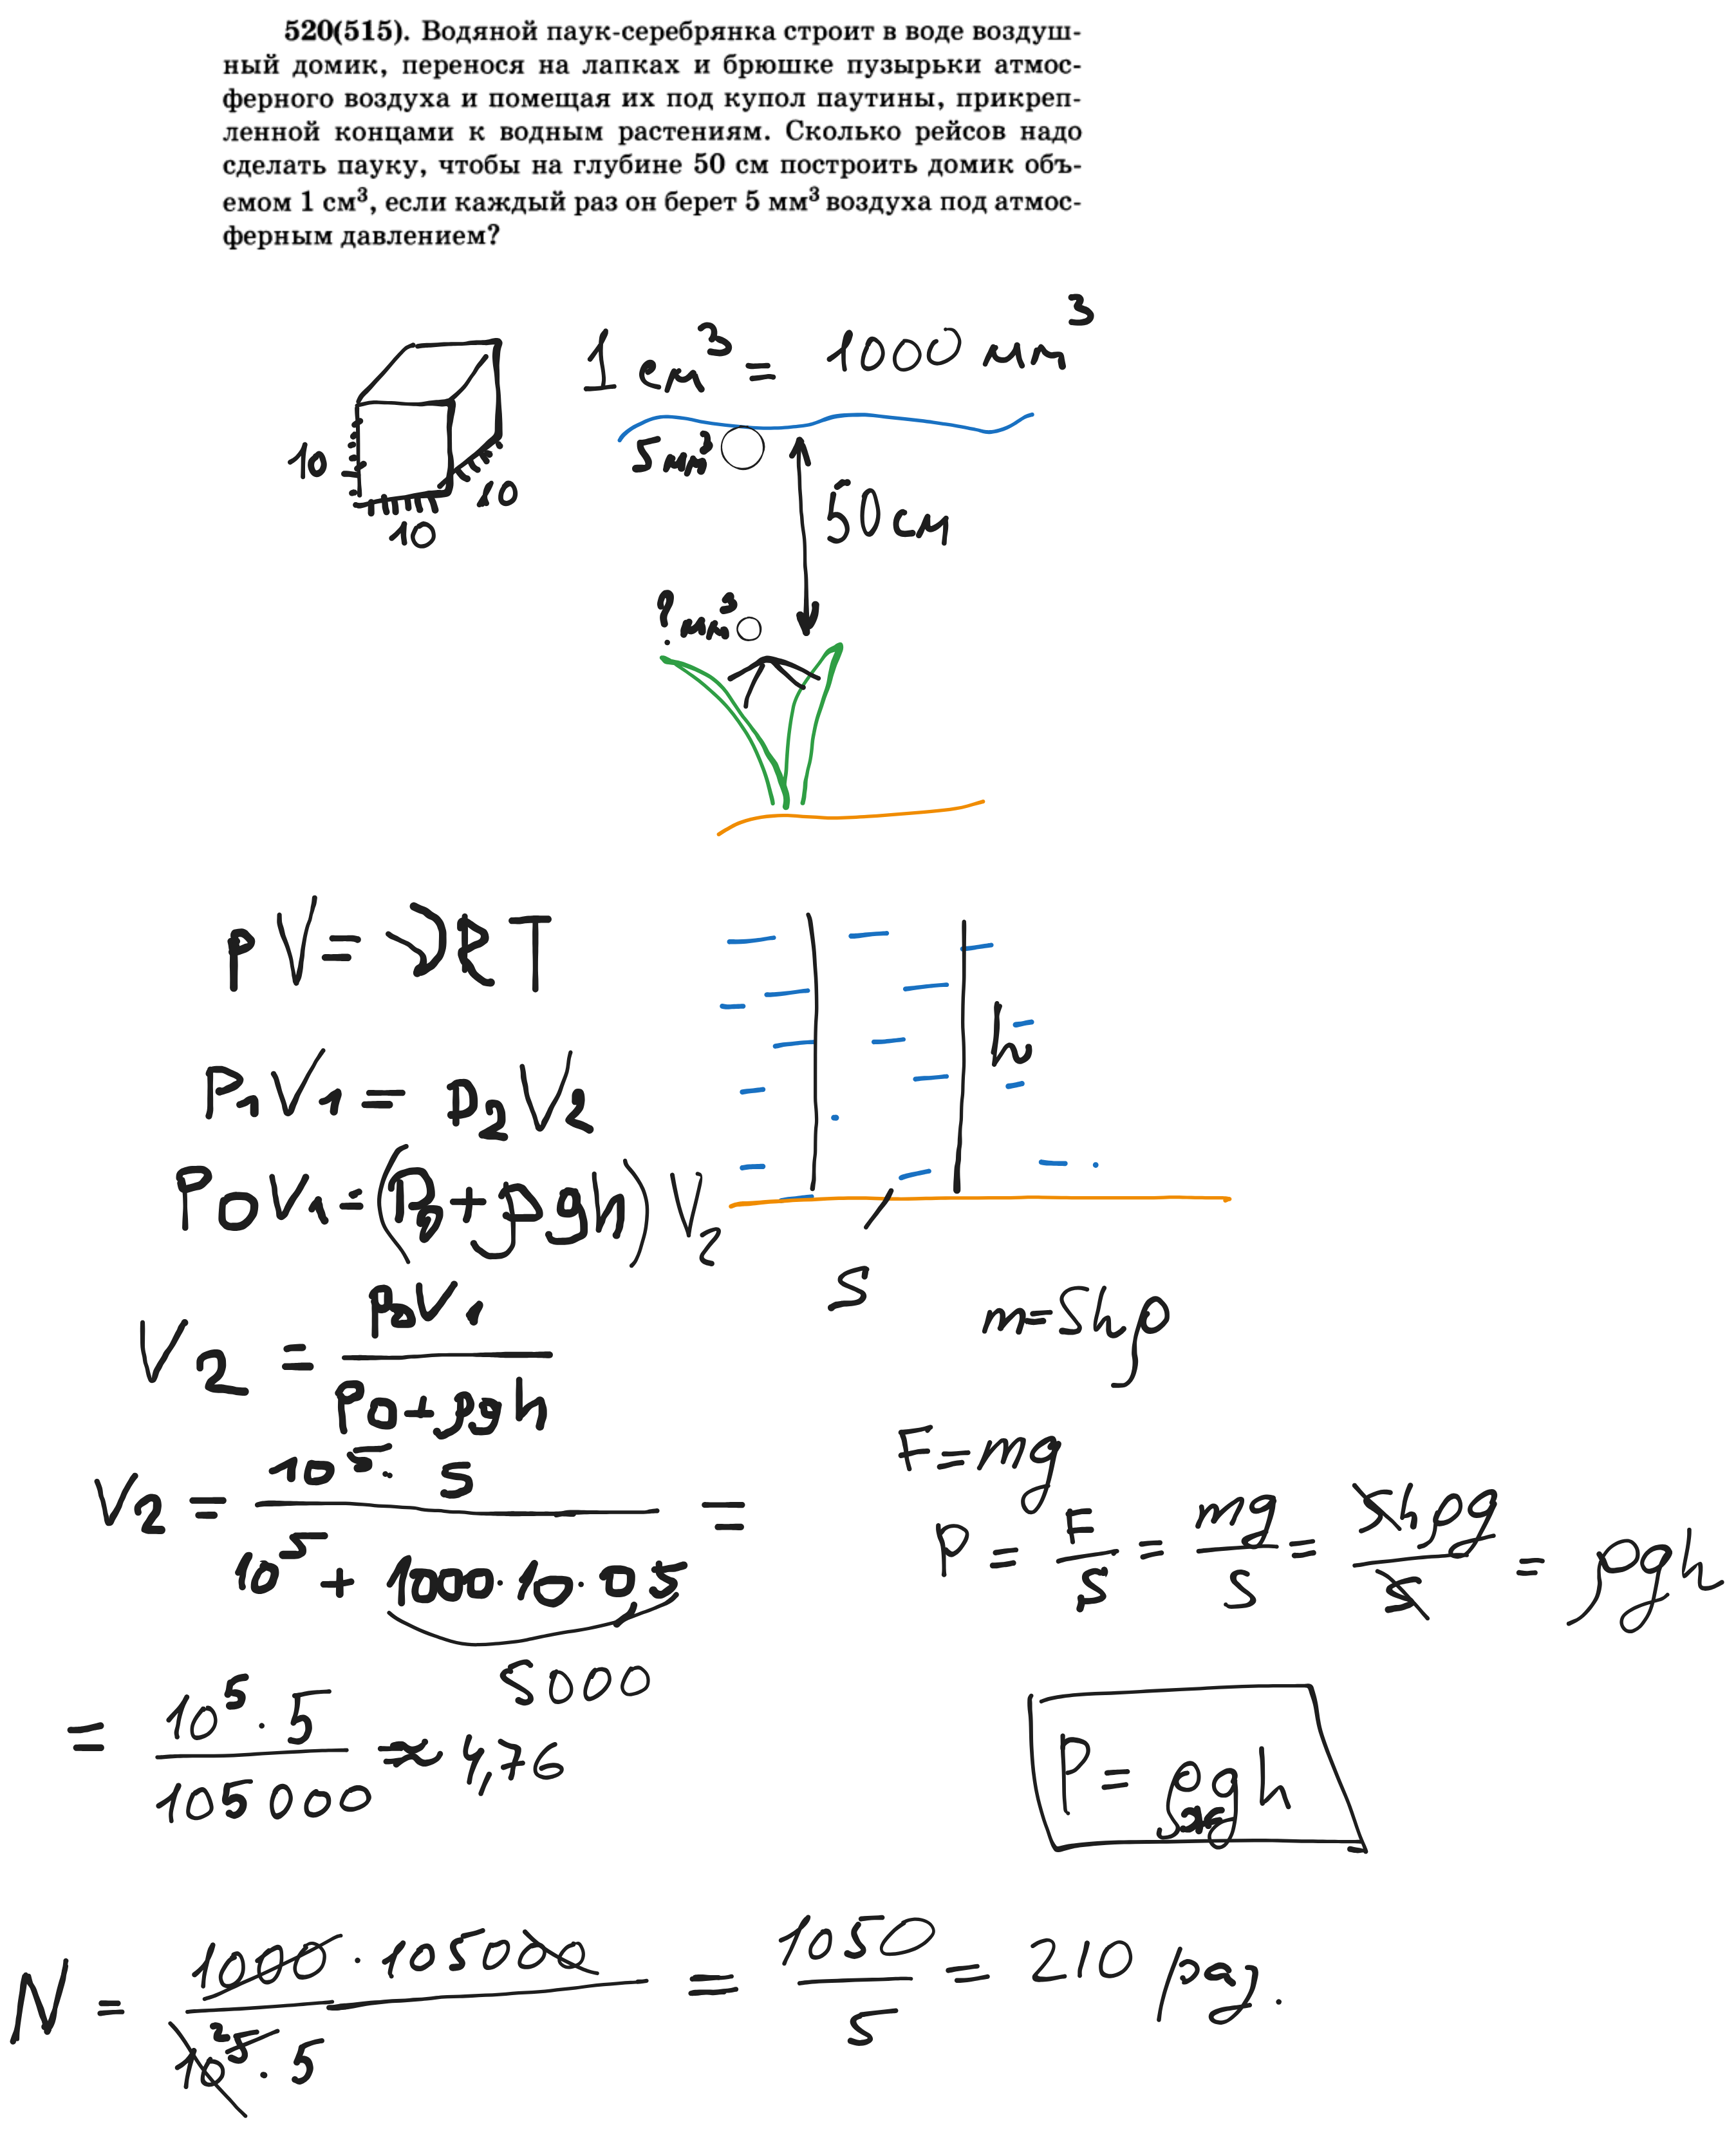 520(515). Водяной паук-серебрянка строит в воде воздуш-
ный домик, перенося на лапках и брюшке пузырьки атмос-
ферного воздуха и помещая их под купол паутины, прикреп-
ленной концами к водным растениям. Сколько рейсов надо
сделать пауку, чтобы на глубине 50 см построить домик объ-
емом 1 см³, если каждый раз он берет 5 мм³ воздуха под атмос-
ферным давлением?
1 см³ = 1000 мм³
10
10
10
5 мм³
50 см
? мм³
pV = νRT
h
P₁V₁ = P₂V₂
P₀V₁ = (P₀ + ρgh) V₂
S
m = Shρ
V₂ = p₀V₁ / (p₀ + ρgh)
F = mg
V₂ = 10⁵ · 5 / (10⁵ + 1000 · 10 · 0,5) =
P = F/S = mg/S = Shρg/S = ρgh
5000
= 10⁵ · 5 / 105000 ≈ 4,76
P = ρgh
ж
N = 1000 · 105000 / (10⁵ · 5) = 1050 / 5 = 210 раз.
2